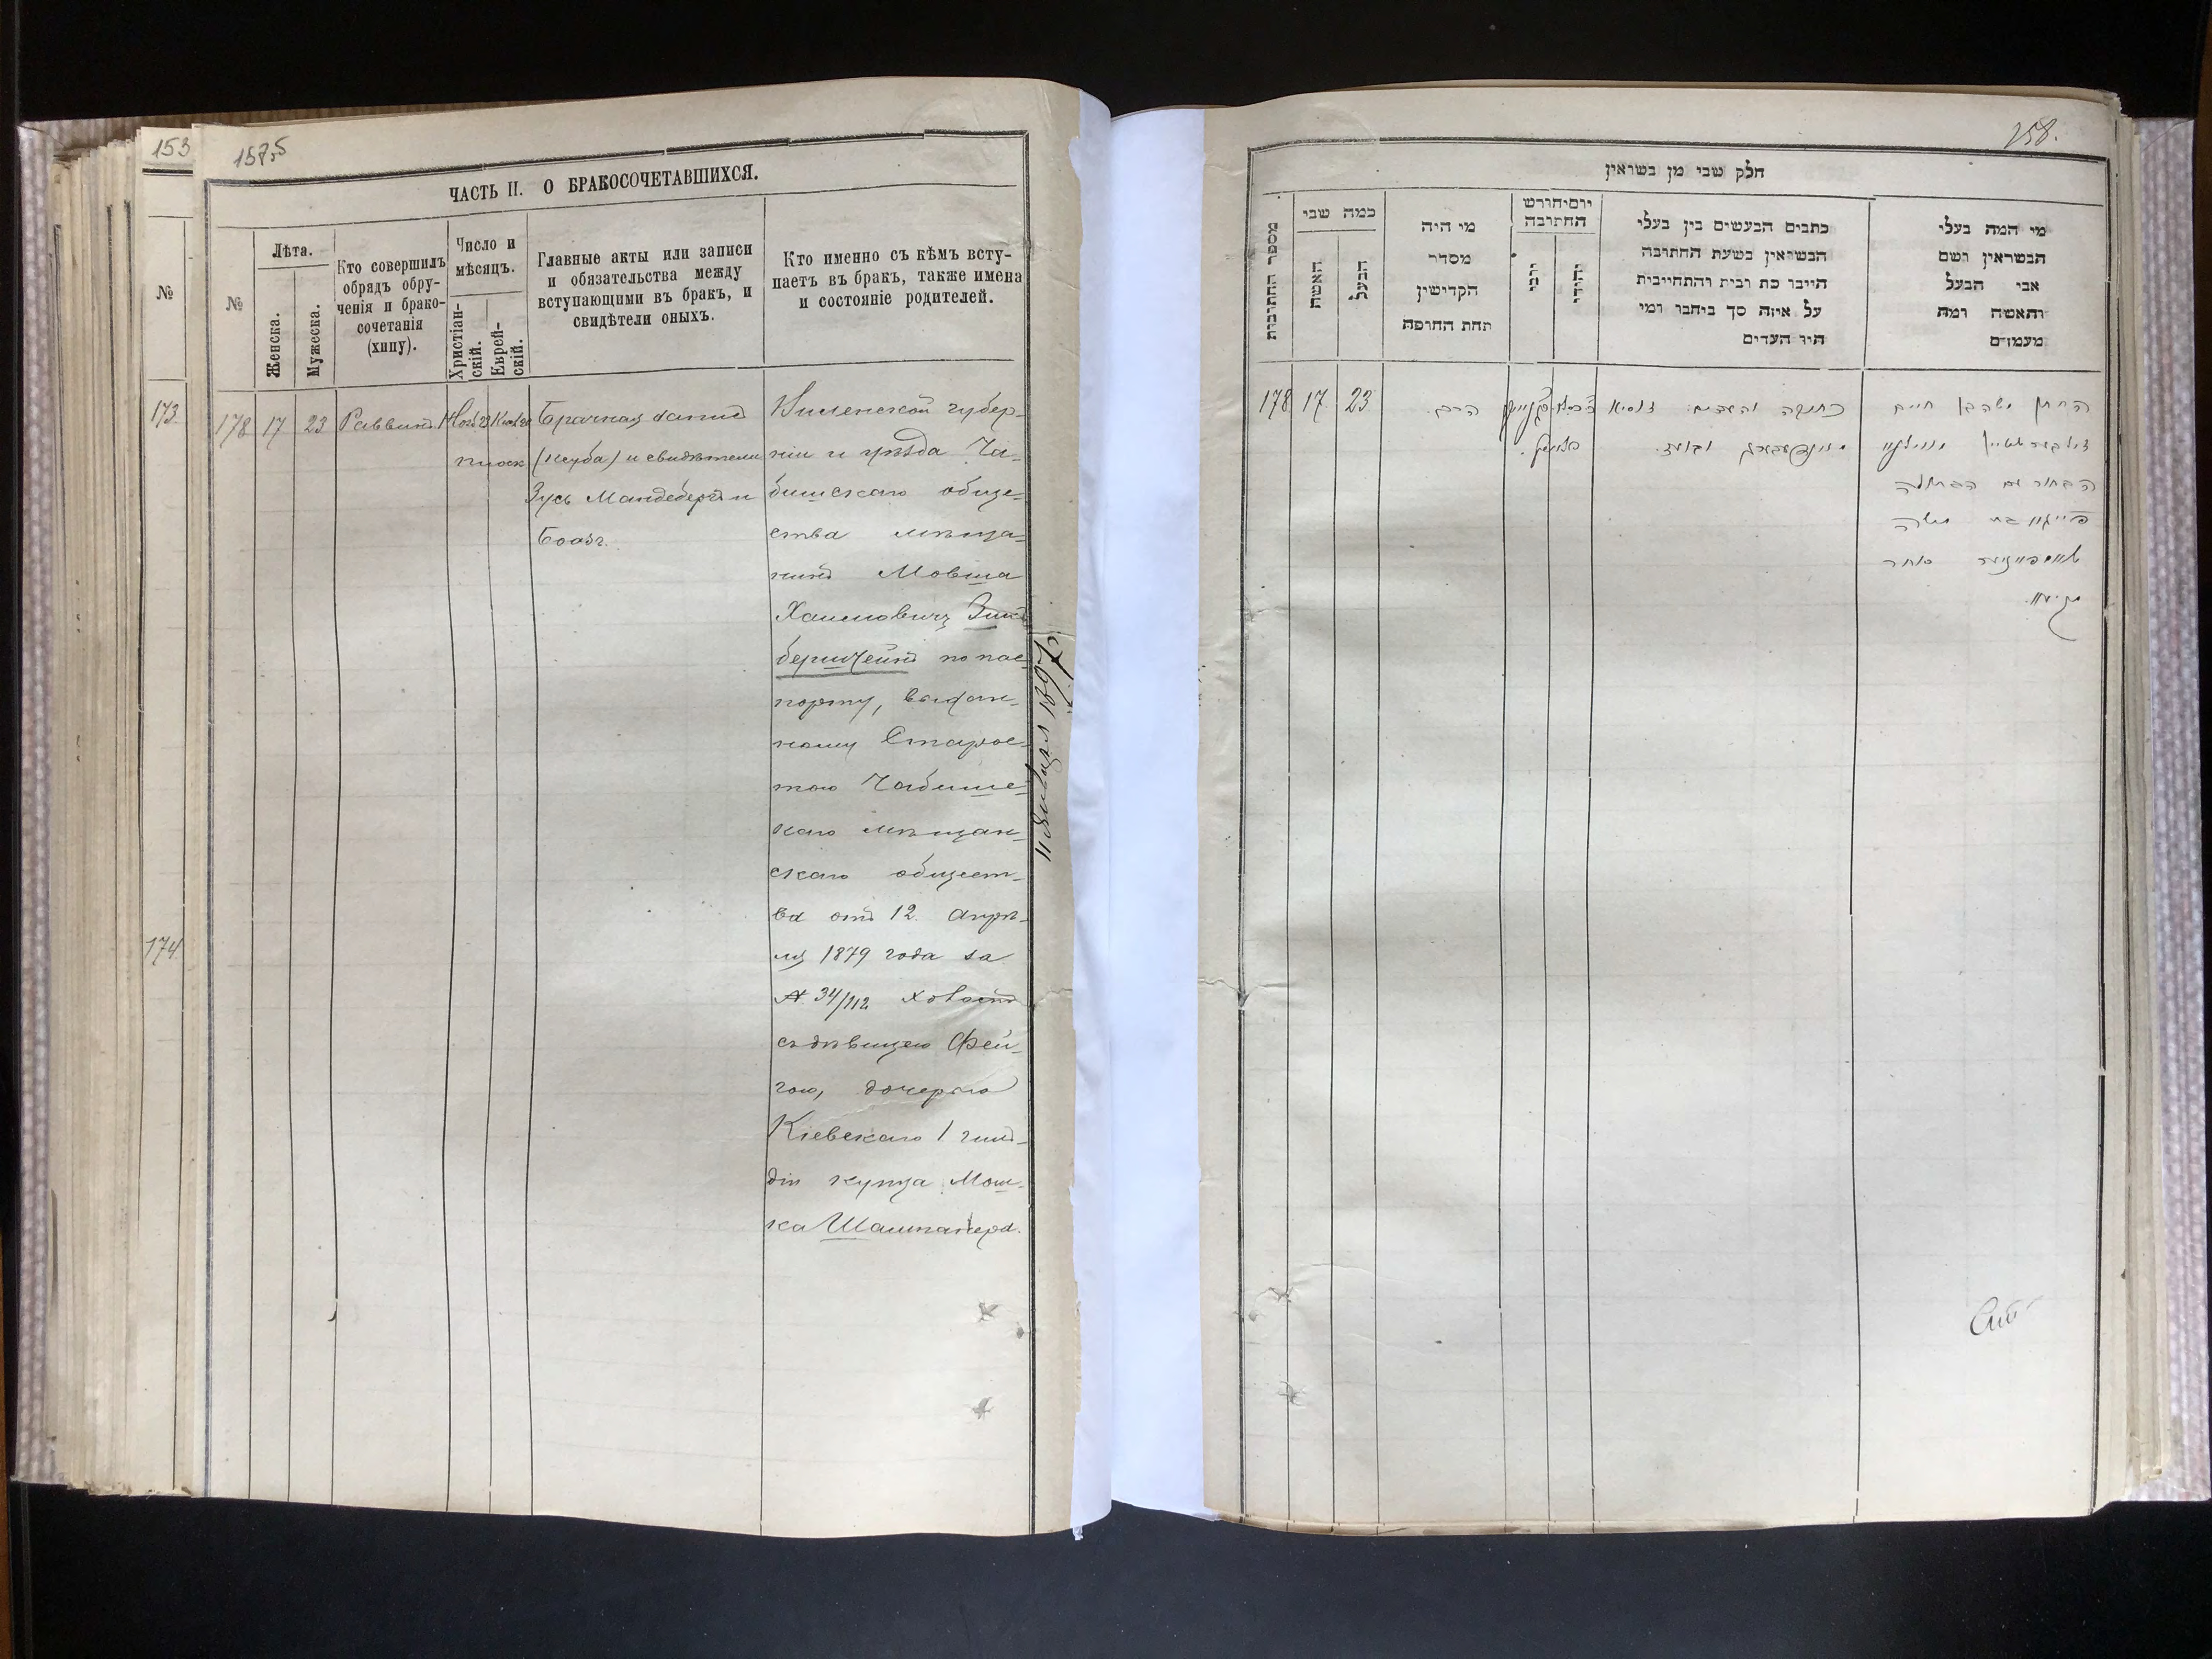 153
157,5
ЧАСТЬ II. О БРАКОСОЧЕТАВШИХСЯ.
№
№
Лѣта.
Женска.
Мужеска.
Кто совершилъ
обрядъ обру-
ченія и брако-
сочетанія
(хипу).
Число и
мѣсяцъ.
Христіан-
скій.
Еврей-
скій.
Главные акты или записи
и обязательства между
вступающими въ брак, и
свидѣтели оныхъ.
Кто именно съ кѣмъ всту-
паетъ въ бракъ, также имена
и состояніе родителей.
173.
174
178 17 23 Раввинъ
Брачная запись
(кетуба) и свидѣтели
Зусь Мандебергъ и
Боазъ.
Виленской губер-
ніи и уѣзда Ча-
бишскаго обще-
ства мѣща-
нинъ Мовша
Хаимовичъ Зиль
берштейнъ по пас-
порту, выдан-
ному Старос-
тою Чабишс-
каго мѣщан-
скаго общест-
ва отъ 12 Апрѣ-
ля 1879 года за
№ 34/112 холостъ
съ дѣвицею Фей-
гою, дочерью
Кіевскаго 1 гиль-
діи купца Мош-
ка Шампанера.
11 Января 1897
258.
חלק שני מן נשואין
מספר החתונות
כמה שני
האשה
הבעל
מי היה
מסדר
הקדישין
תחת החופה
יום וחורש
החתונה
יוני
יהודי
כתבים הנעשים בין בעלי
הנשואין בשעת החתונה
היינו כת ובית והתחייבית
על איזה סך ביחבו ומי
היו העדים
מי המה בעלי
הנשואין ושם
אבי הבעל
והאשה ומה
מעמדם
178 17 23
הרב.
כתובה והעדים: זוסיא
מאנדעבערג ובועז.
החתן משה בן חיים
זילבערשטיין מווילנא
הבחור עם הבתולה
פייגא בת משה
שאמפאניער סוחר
מקיעוו.